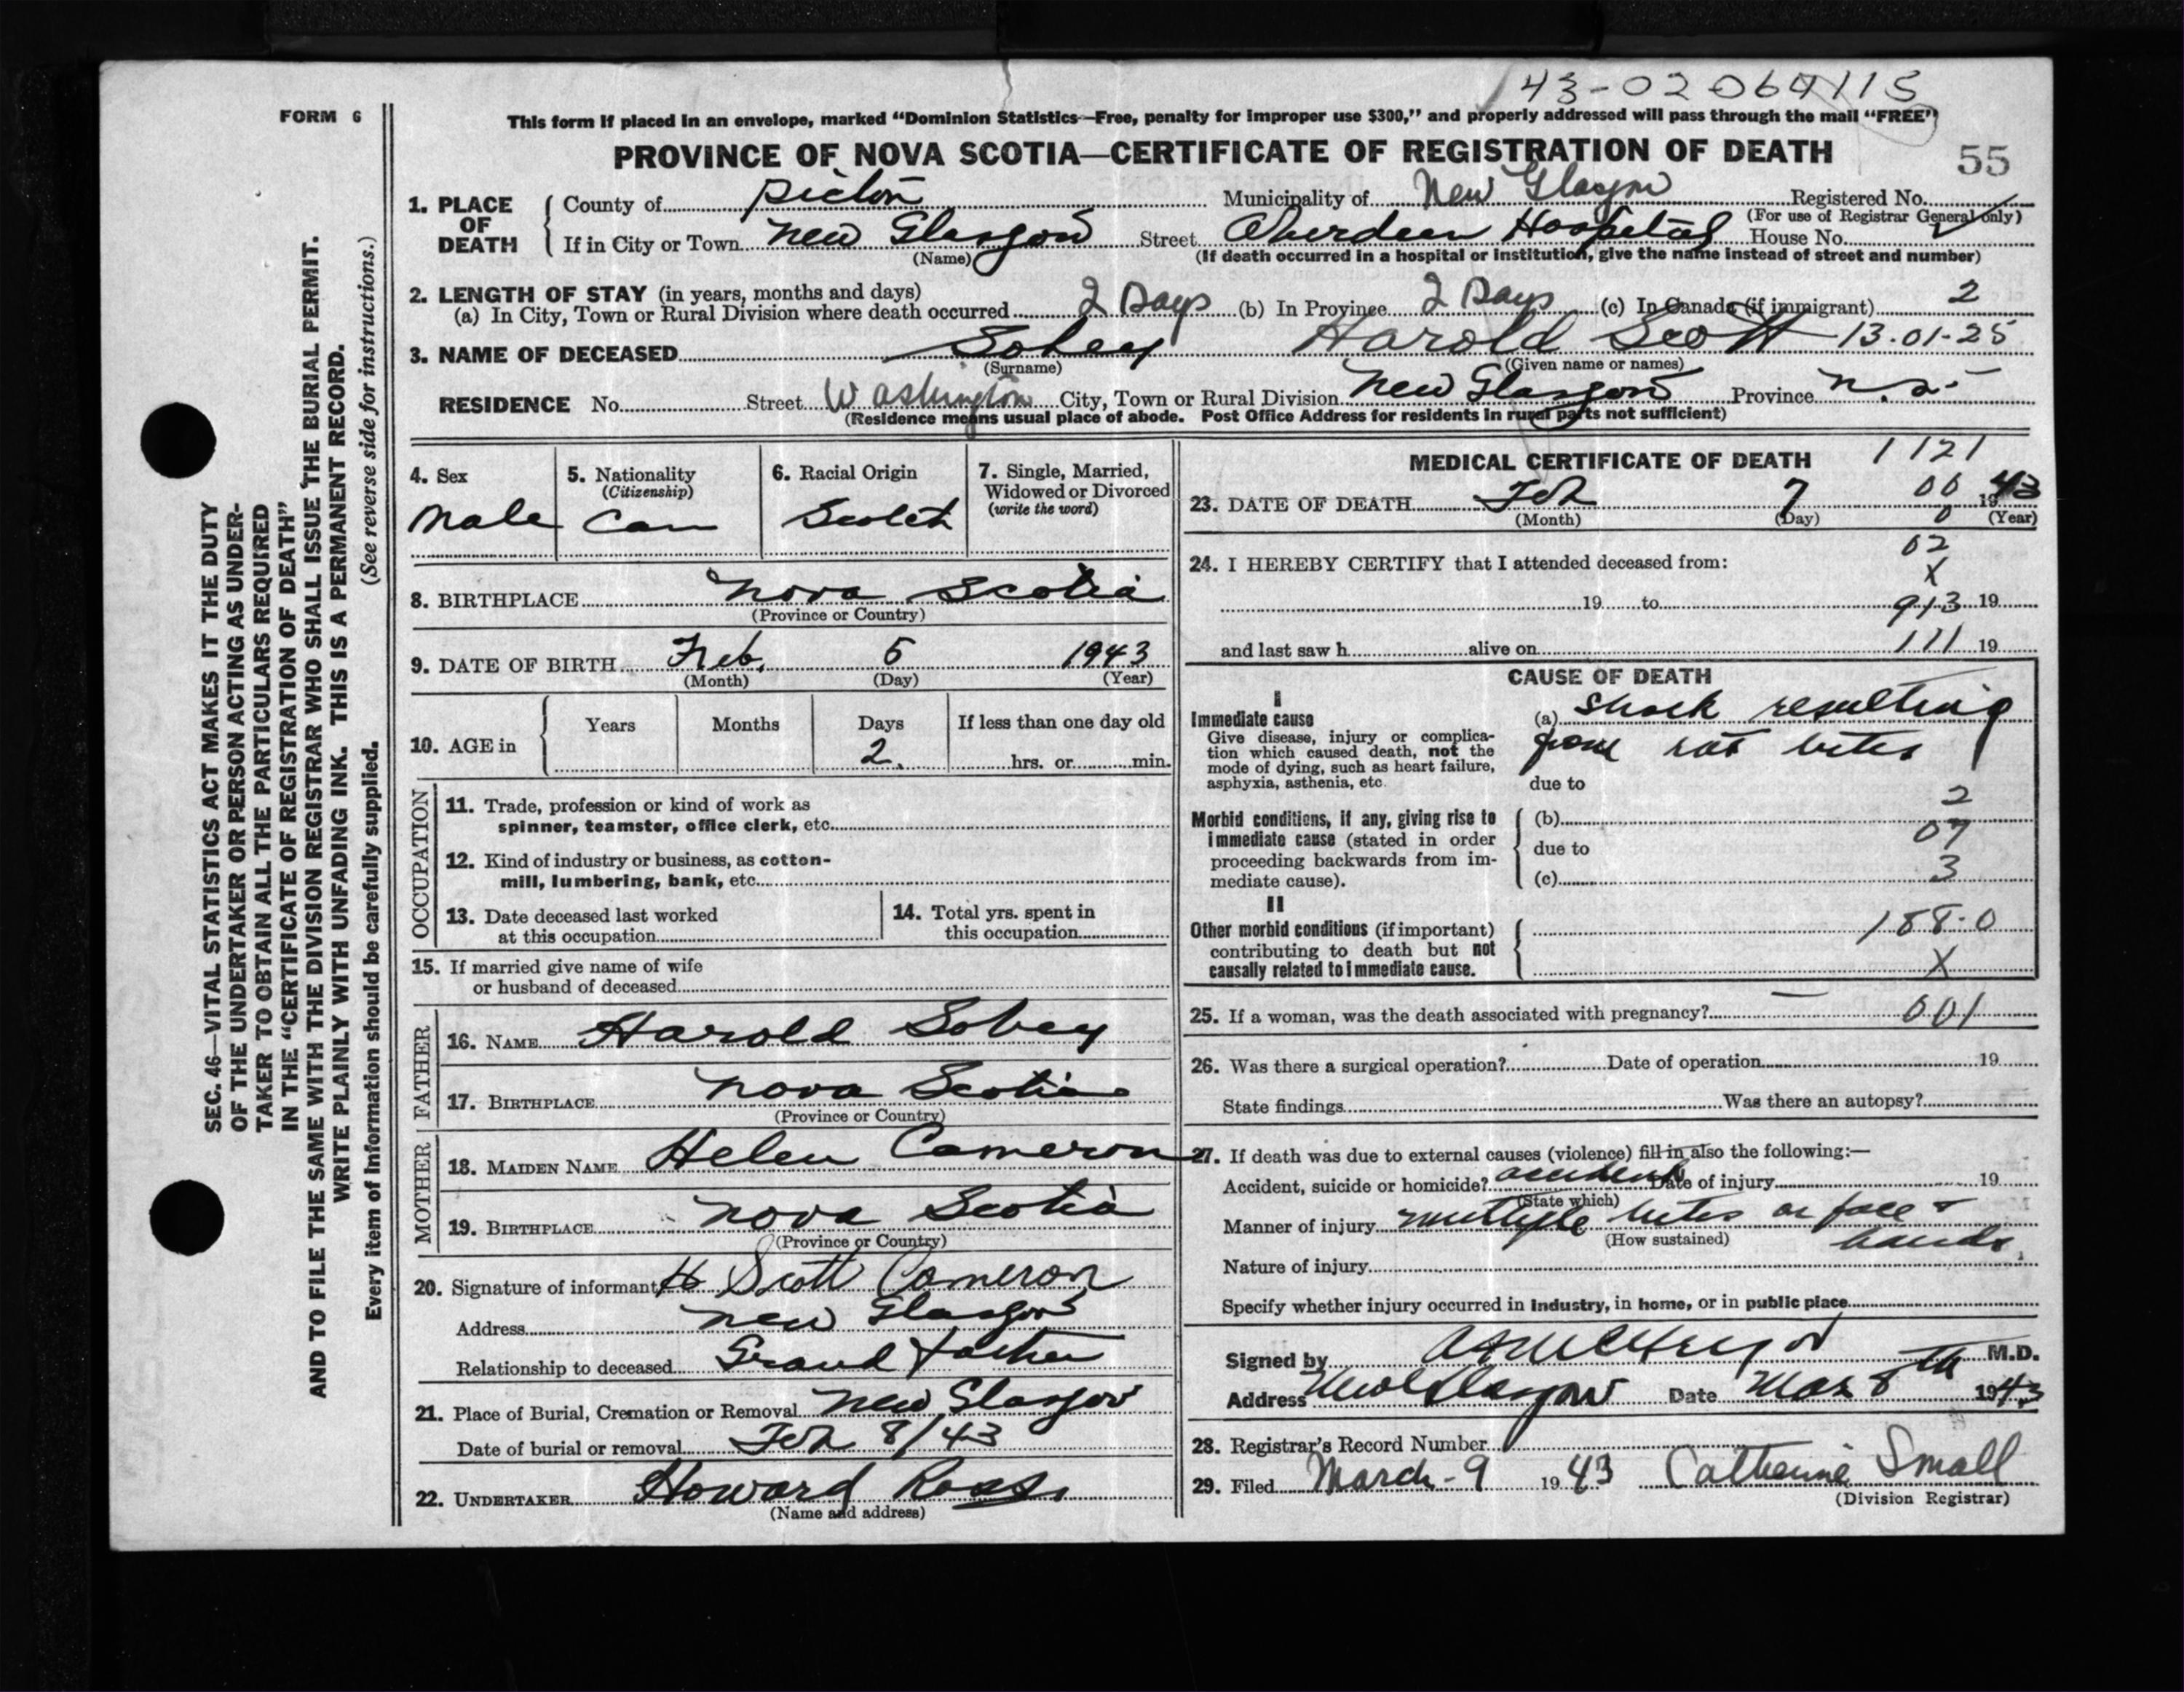 43-02064115
FORM 6
This form if placed in an envelope, marked “Dominion Statistics—Free, penalty for improper use $300,” and properly addressed will pass through the mail “FREE”
PROVINCE OF NOVA SCOTIA—CERTIFICATE OF REGISTRATION OF DEATH
55
1. PLACE OF DEATH
County of Pictou Municipality of New Glasgow Registered No.
(For use of Registrar General only)
If in City or Town New Glasgow Street Aberdeen Hospital House No.
(Name) (If death occurred in a hospital or institution, give the name instead of street and number)
2. LENGTH OF STAY (in years, months and days)
(a) In City, Town or Rural Division where death occurred 2 Days (b) In Province 2 Days (c) In Canada (if immigrant) 2
3. NAME OF DECEASED Sobey Harold Scott 13-01-25
(Surname) (Given name or names)
RESIDENCE No. Street Washington City, Town or Rural Division New Glasgow Province N.S.
(Residence means usual place of abode. Post Office Address for residents in rural parts not sufficient)
SEC. 46—VITAL STATISTICS ACT MAKES IT THE DUTY
OF THE UNDERTAKER OR PERSON ACTING AS UNDER-
TAKER TO OBTAIN ALL THE PARTICULARS REQUIRED
IN THE “CERTIFICATE OF REGISTRATION OF DEATH”
AND TO FILE THE SAME WITH THE DIVISION REGISTRAR WHO SHALL ISSUE THE BURIAL PERMIT.
WRITE PLAINLY WITH UNFADING INK. THIS IS A PERMANENT RECORD.
Every item of information should be carefully supplied. (See reverse side for instructions.)
4. Sex
Male
5. Nationality
(Citizenship)
Can
6. Racial Origin
Scotch
7. Single, Married,
Widowed or Divorced
(write the word)
8. BIRTHPLACE Nova Scotia
(Province or Country)
9. DATE OF BIRTH Feb. 5 1943
(Month) (Day) (Year)
10. AGE in
Years Months Days If less than one day old
2. hrs. or min.
OCCUPATION
11. Trade, profession or kind of work as
spinner, teamster, office clerk, etc.
12. Kind of industry or business, as cotton-
mill, lumbering, bank, etc.
13. Date deceased last worked
at this occupation
14. Total yrs. spent in
this occupation
15. If married give name of wife
or husband of deceased
FATHER
16. NAME Harold Sobey
17. BIRTHPLACE Nova Scotia
(Province or Country)
MOTHER
18. MAIDEN NAME Helen Cameron
19. BIRTHPLACE Nova Scotia
(Province or Country)
20. Signature of informant H Scott Cameron
Address New Glasgow
Relationship to deceased Grand father
21. Place of Burial, Cremation or Removal New Glasgow
Date of burial or removal Feb 8/43
22. UNDERTAKER Howard Ross
(Name and address)
MEDICAL CERTIFICATE OF DEATH 1121
23. DATE OF DEATH Feb 7 00 1943
(Month) (Day) 0 (Year)
24. I HEREBY CERTIFY that I attended deceased from: 02
X
19 to 913 19
and last saw h alive on 111 19
CAUSE OF DEATH
I
Immediate cause
Give disease, injury or complica-
tion which caused death, not the
mode of dying, such as heart failure,
asphyxia, asthenia, etc.
(a) Shock resulting
from rat bites
due to
Morbid conditions, if any, giving rise to
immediate cause (stated in order
proceeding backwards from im-
mediate cause).
2
(b)
07
due to
3
(c)
II
Other morbid conditions (if important)
contributing to death but not
causally related to immediate cause.
188.0
X
25. If a woman, was the death associated with pregnancy? — 001
26. Was there a surgical operation? Date of operation 19
State findings Was there an autopsy?
27. If death was due to external causes (violence) fill in also the following:—
Accident, suicide or homicide? accident Date of injury 19
(State which)
Manner of injury multiple bites on face &
(How sustained) hands.
Nature of injury
Specify whether injury occurred in industry, in home, or in public place
Signed by M.D.
Address New Glasgow Date Mar 8th 1943
28. Registrar's Record Number
29. Filed March-9 1943 Catherine Small
(Division Registrar)